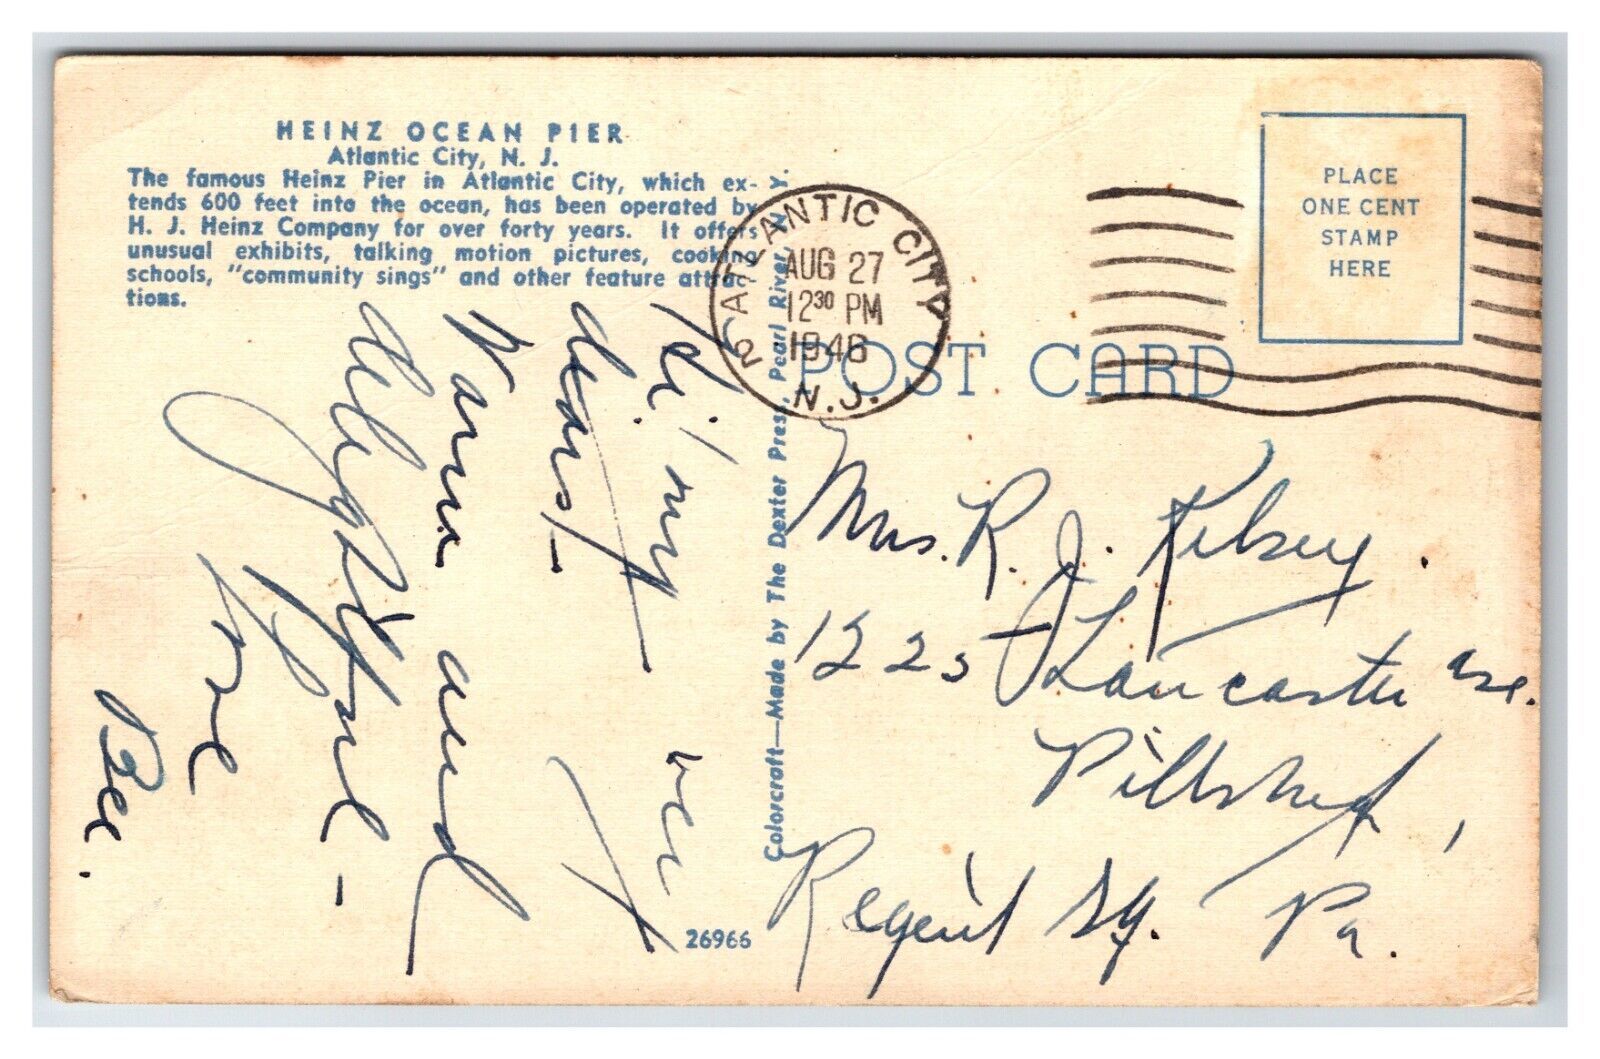 HEINZ OCEAN PIER
Atlantic City, N. J.
The famous Heinz Pier in Atlantic City, which ex-
tends 600 feet into the ocean, has been operated by
H. J. Heinz Company for over forty years. It offers
unusual exhibits, talking motion pictures, cooking
schools, "community sings" and other feature attrac-
tions.
Hi! my
dears! - very
Warm and
delightful -
Love
Bee.
26966
Colorcraft—Made by The Dexter Press, Pearl River, N. Y.
ATLANTIC CITY
AUG 27
12 30 PM
1946
N.J.
2
POST CARD
PLACE
ONE CENT
STAMP
HERE
Mrs. R. J. Kelsey.
1225 Lancaster Ave.
Pittsburgh,
Regent Sq. Pa.